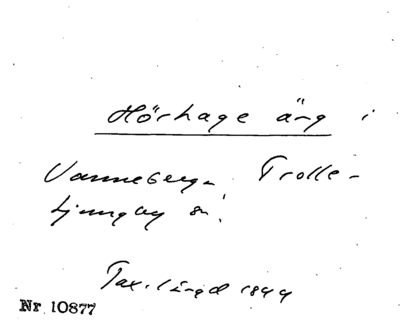 Hörhage äng i
Vanneberga, Trolle-
ljungby sn.
Tax. längd 1844
Nr 10877